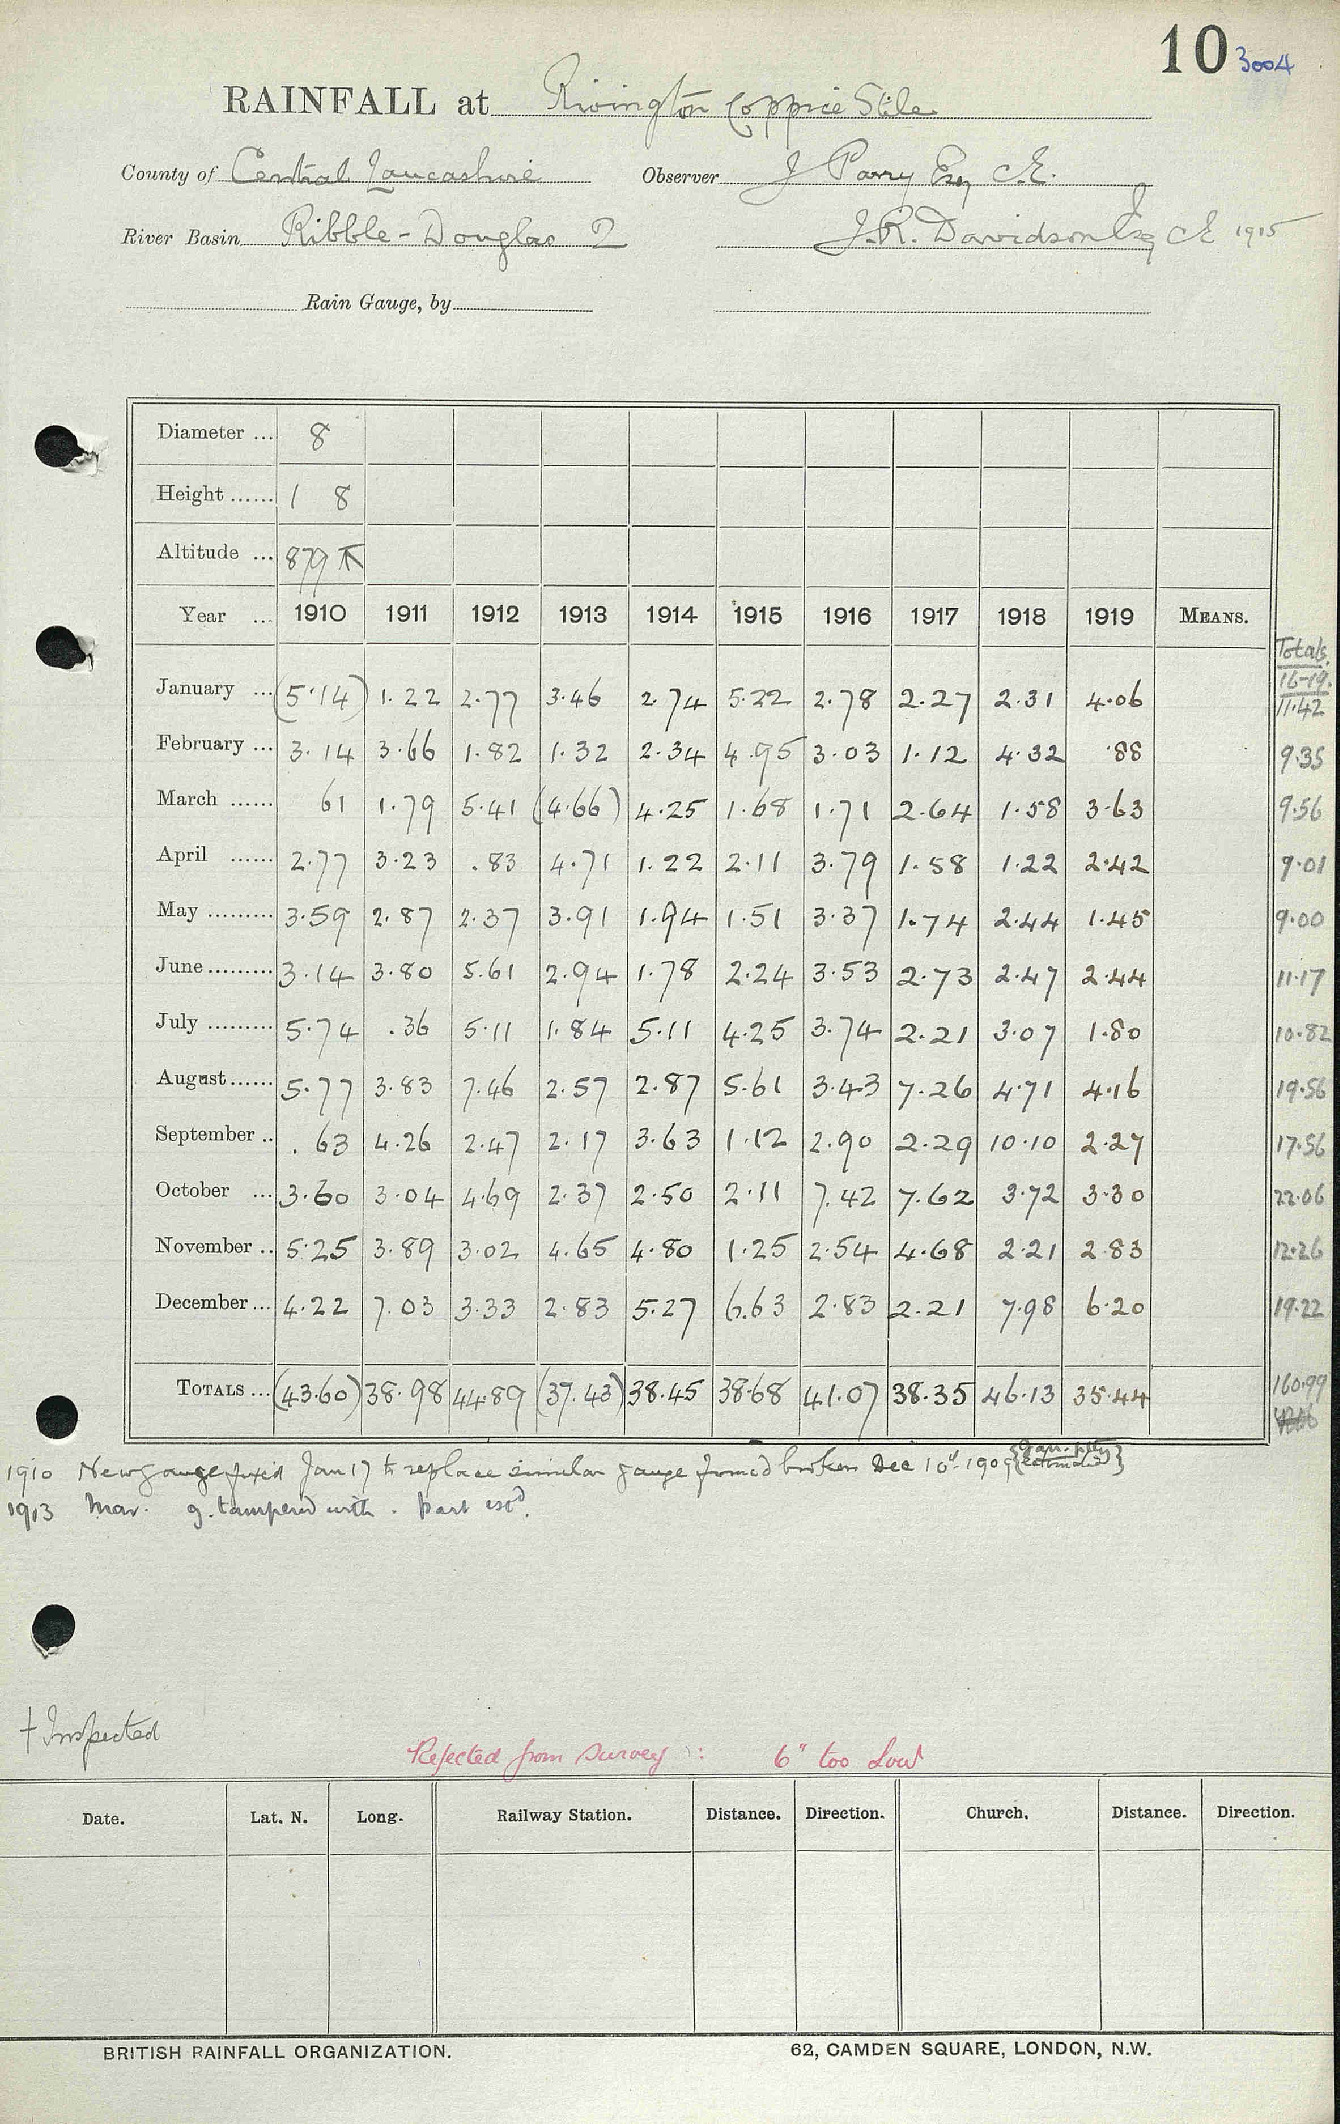 10 3004
RAINFALL at Rivington Coppice Stile
County of Central Lancashire Observer J Parry Esq C.E.
River Basin Ribble-Douglas 2 J.R. Davidson Esq C.E 1915
Rain Gauge, by
Diameter ... 8
Height ...... 1 8
Altitude ... 879
Year ... 1910 1911 1912 1913 1914 1915 1916 1917 1918 1919 MEANS. Totals 16-19.
January ... (5.14) 1.22 2.77 3.46 2.74 5.22 2.78 2.27 2.31 4.06 11.42
February ... 3.14 3.66 1.82 1.32 2.34 4.95 3.03 1.12 4.32 .88 9.35
March ...... 61 1.79 5.41 (4.66) 4.25 1.68 1.71 2.64 1.58 3.63 9.56
April ...... 2.77 3.23 .83 4.71 1.22 2.11 3.79 1.58 1.22 2.42 9.01
May ......... 3.59 2.87 2.37 3.91 1.94 1.51 3.37 1.74 2.44 1.45 9.00
June ......... 3.14 3.80 5.61 2.94 1.78 2.24 3.53 2.73 2.47 2.44 11.17
July ......... 5.74 .36 5.11 1.84 5.11 4.25 3.74 2.21 3.07 1.80 10.82
August ...... 5.77 3.83 7.46 2.57 2.87 5.61 3.43 7.26 4.71 4.16 19.56
September .. .63 4.26 2.47 2.17 3.63 1.12 2.90 2.29 10.10 2.27 17.56
October ... 3.60 3.04 4.69 2.37 2.50 2.11 7.42 7.62 3.72 3.30 22.06
November .. 5.25 3.89 3.02 4.65 4.80 1.25 2.54 4.68 2.21 2.83 12.26
December ... 4.22 7.03 3.33 2.83 5.27 6.63 2.83 2.21 7.98 6.20 19.22
TOTALS ... (43.60) 38.98 44.89 (37.43) 38.45 38.68 41.07 38.35 46.13 35.44 160.99
1910 New gauge fixed Jan 17 to replace similar gauge found broken Dec 10th 1909 {Jan. ptly estimated}
1913 Mar. g. tampered with. Part estd.
† Inspected
Rejected from survey : 6" too low
Date. Lat. N. Long. Railway Station. Distance. Direction. Church. Distance. Direction.
BRITISH RAINFALL ORGANIZATION. 62, CAMDEN SQUARE, LONDON, N.W.